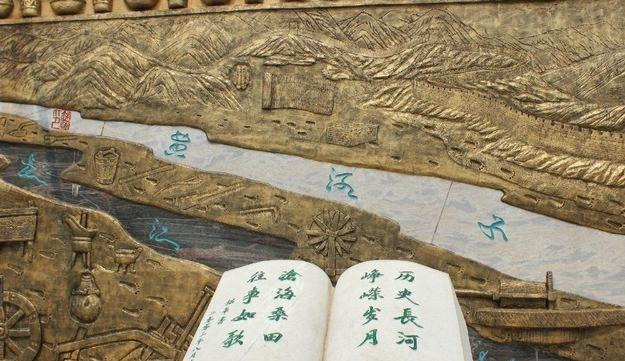 黄河水
长江
历史長河
峥嵘岁月
滄海桑田
往事如歌